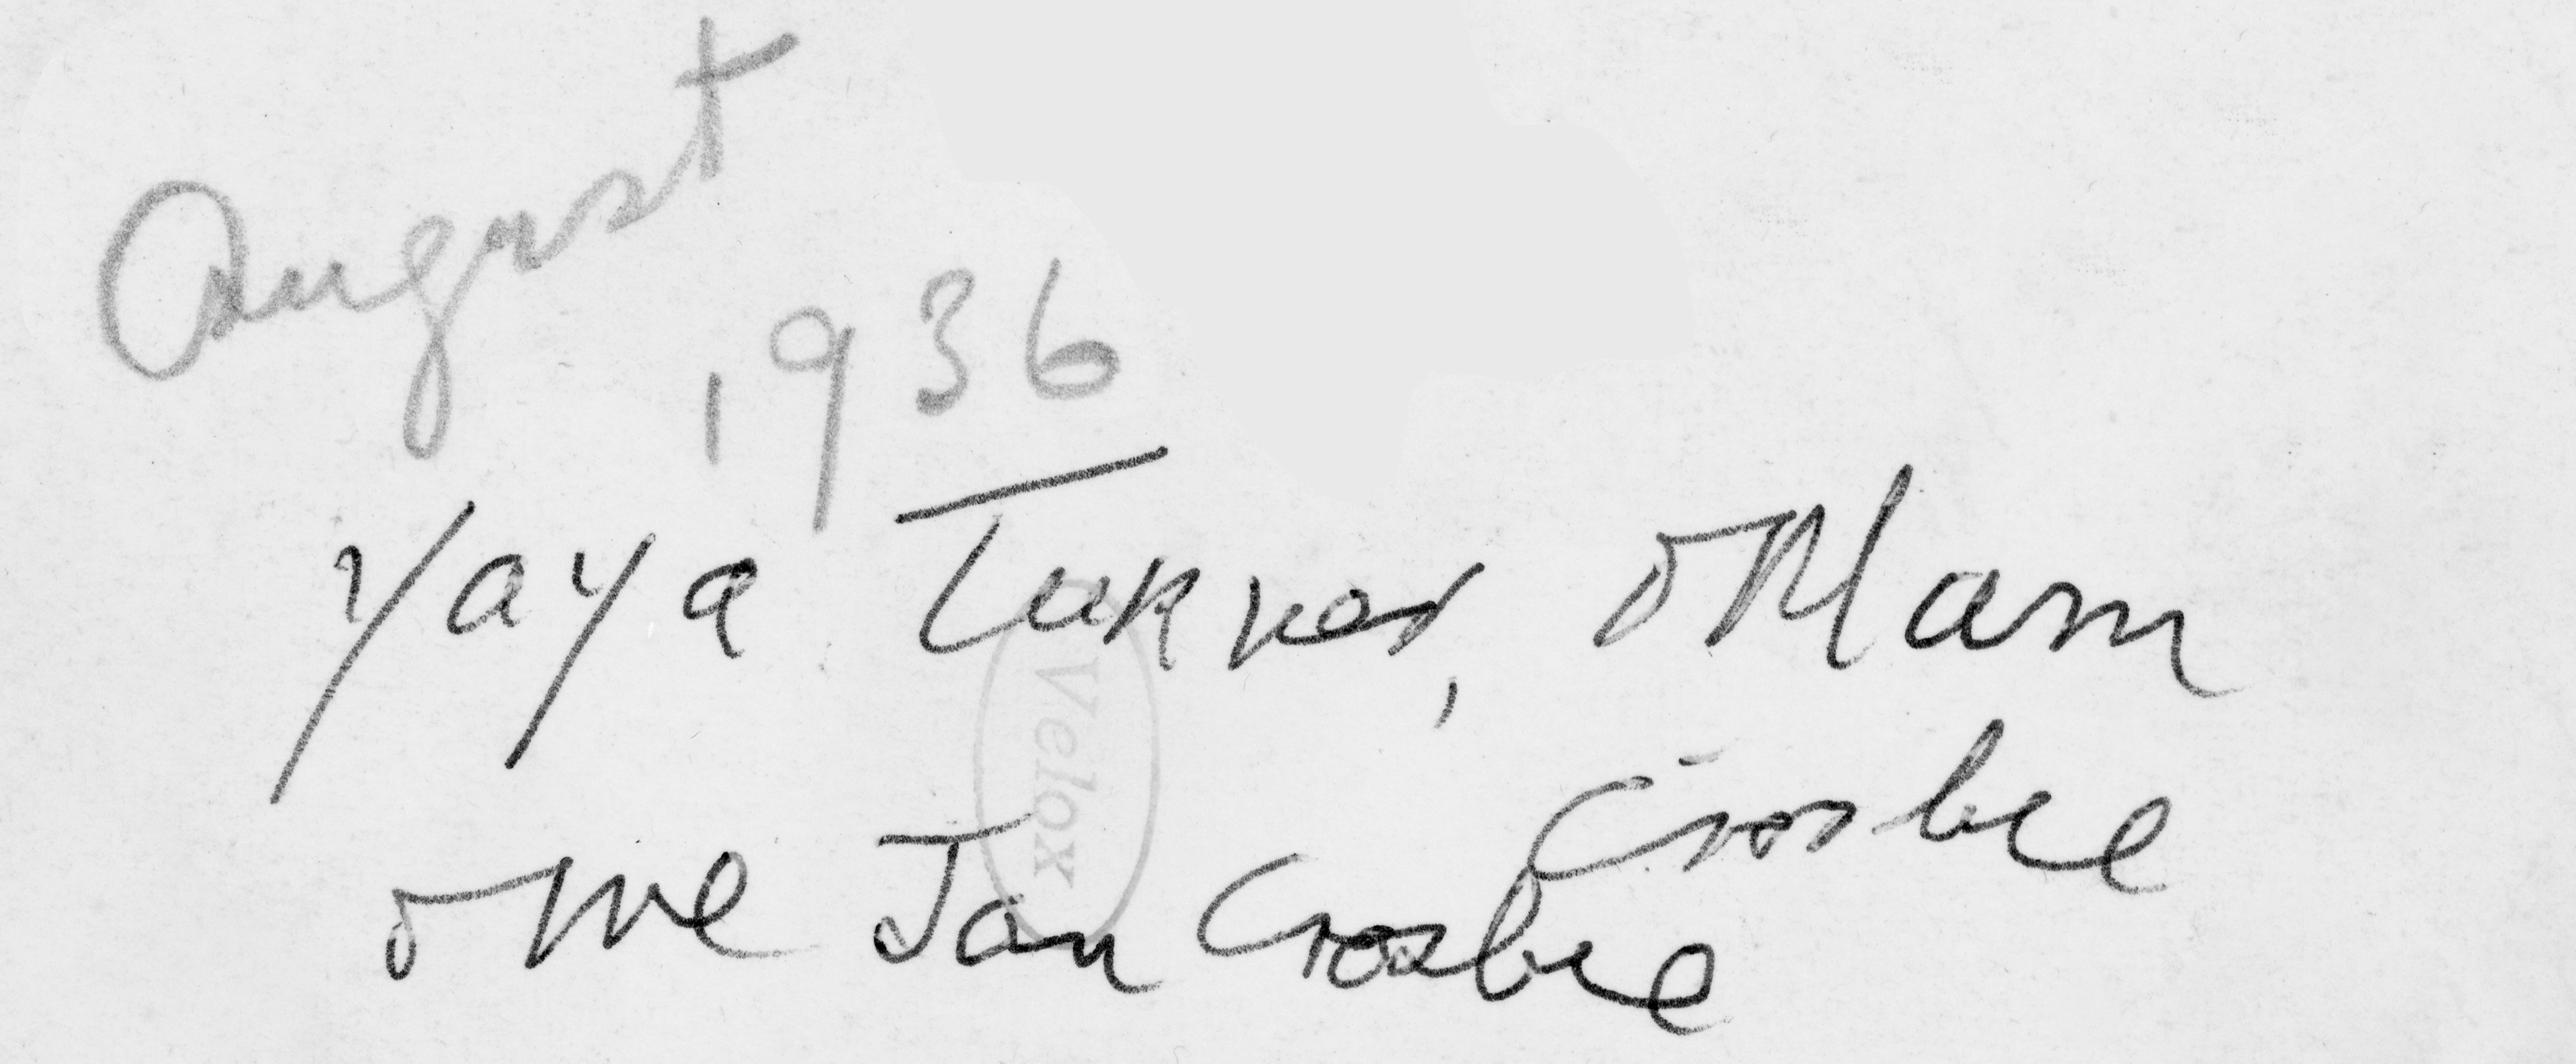 August
1936
Yaya Turner, Mam
Crosbie
Me Jan Crosbie
Velox